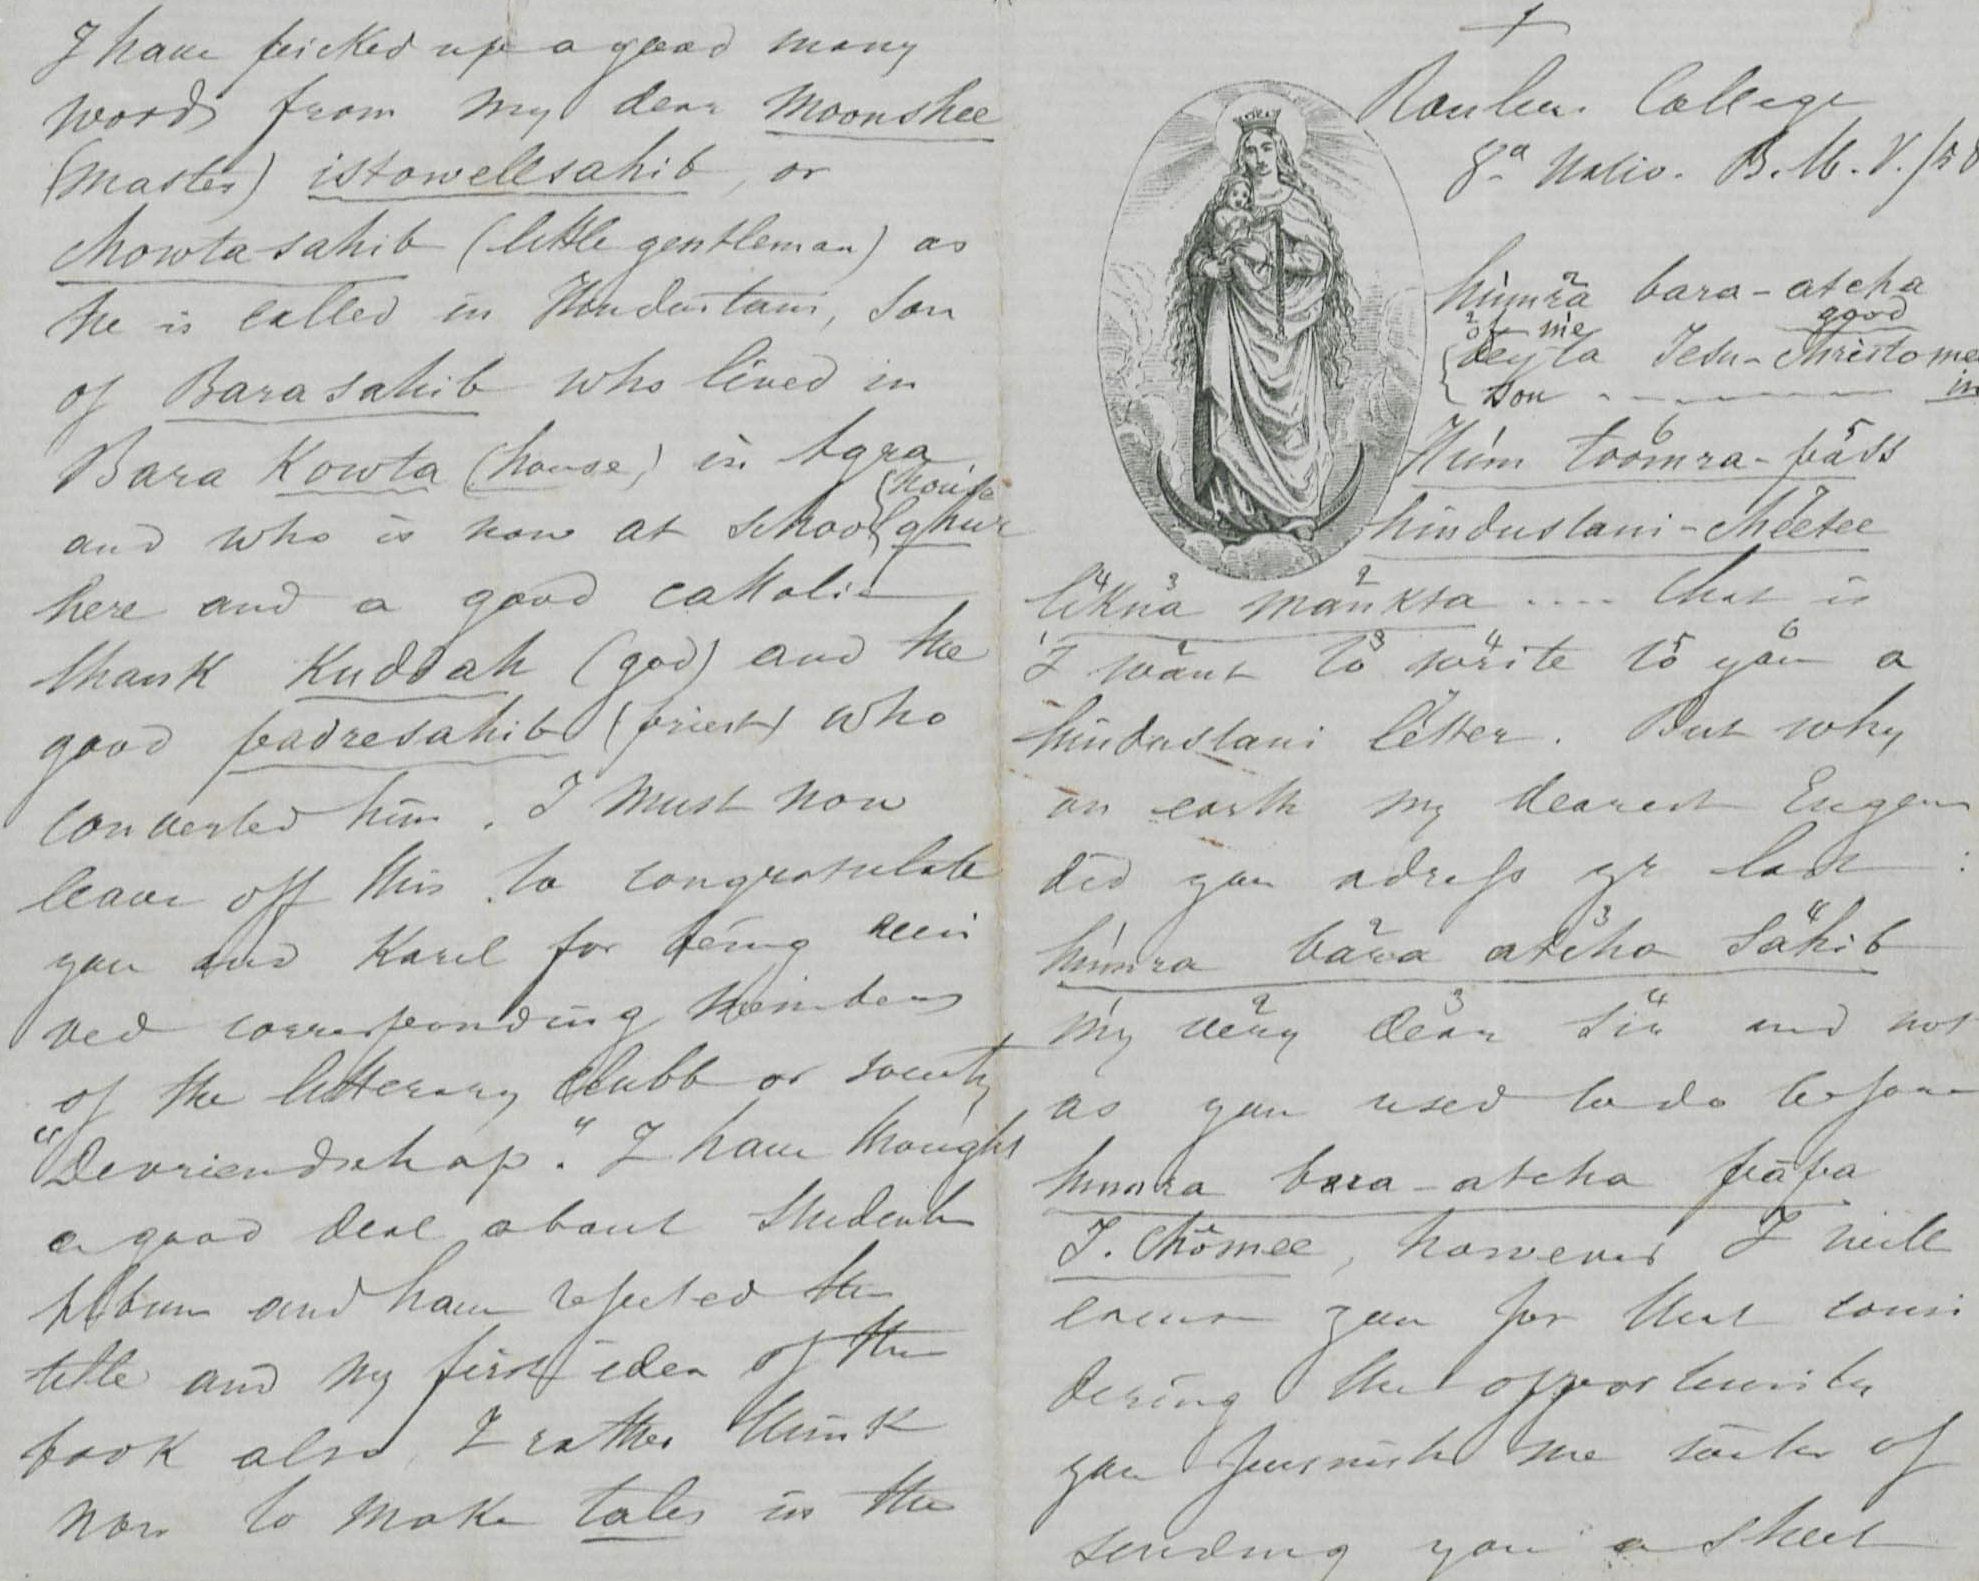 I have picked up a good many
words from my dear Moonshee
(master) istowellsahib, or
chowta-sahib (little gentleman) as
he is called in Hindustani, son
of Barasahib who lived in
Bara Kowta (house) in Agra
(house
and who is now at school (ghur
here and a good catholic
thank Kuddah (god) and the
good padresahib (priest) who
converted him. I must now
leave off this to congratulate
you and Karel for being recei
ved corresponding members
of the litterary Clubb or society
"De vriendschap". I have thought
a good deal about Students
Album and have rejected the
title and my first idea of the
book also, I rather think
now to make tales in the
Roulers College
8a Nativ. B.M.V. /58
húmra bara-atcha
of me good
beyta Jesu-Christo me
son in
Húm toomra-páss
hindustani-cheetee
likna mankta .... that is
I want to write to you a
hindustani letter. But why
on earth my dearest Eugen
did you adress yr last :
húmra bara atcha Sahib
my very dear Sir and not
as you used to do before
humra bara-atcha papa
J. Chomee, however I will
excuse you for that consi
dering the opportunity
you furnish me with of
sending you a sheet